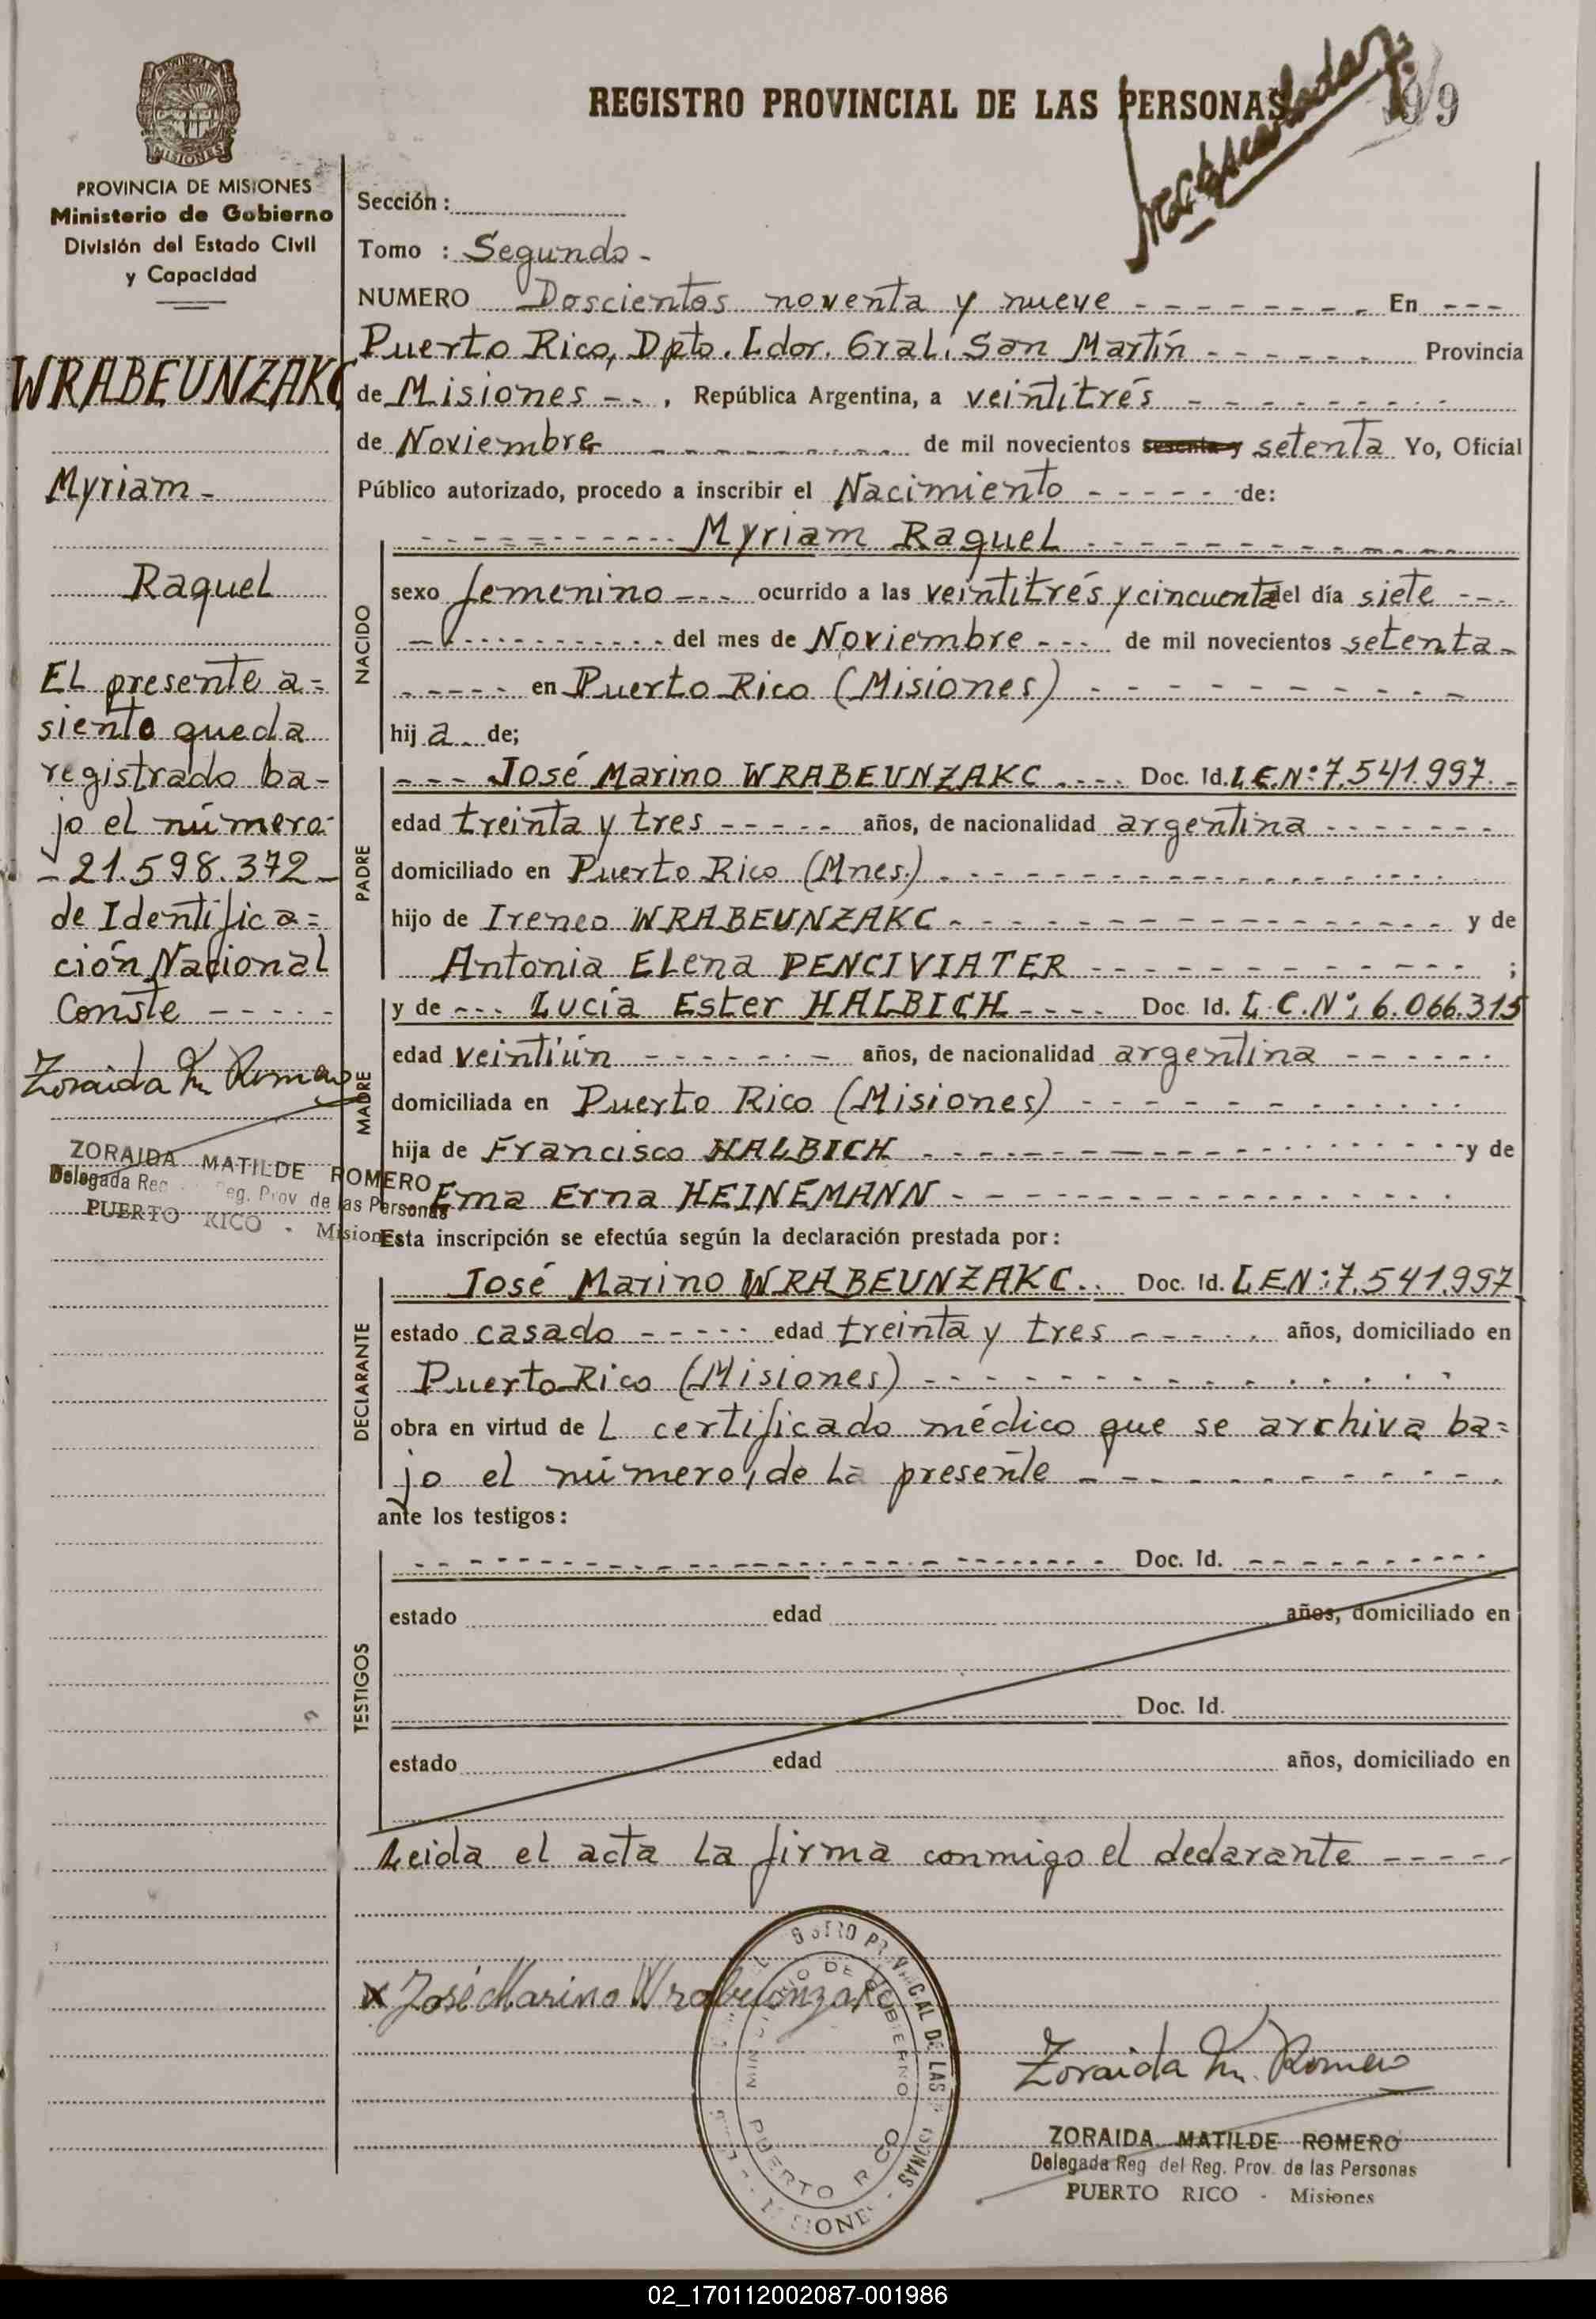 REGISTRO PROVINCIAL DE LAS PERSONAS
PROVINCIA DE MISIONES
Ministerio de Gobierno
División del Estado Civil
y Capacidad
WRABEUNZAKC
Myriam -
Raquel
El presente a=
siento queda
registrado ba-
jo el número
- 21.598.372 -
de Identifica=
ción Nacional
Conste - - - - -
Zoraida M. Romero
ZORAIDA MATILDE ROMERO
Delegada Reg. Prov de las Personas
PUERTO RICO - Misiones
Sección :
Tomo : Segundo -
NUMERO Doscientos noventa y nueve - - - - - - - - En - - -
Puerto Rico, Dpto. Ldor. Gral. San Martín - - - - - - Provincia
de Misiones - - , República Argentina, a veintitrés - - - - - - - - -
de Noviembre - - - - - - - - - de mil novecientos sesenta y setenta Yo, Oficial
Público autorizado, procedo a inscribir el Nacimiento - - - - - de:
NACIDO
- - - - - - - - - - - Myriam Raquel - - - - - - - - - - - - -
sexo femenino - - - ocurrido a las veintitrés y cincuenta del día siete - - -
- - - - - - - - - - - del mes de Noviembre - - - de mil novecientos setenta -
- - - - - en Puerto Rico (Misiones) - - - - - - - - - -
hij a de;
PADRE
- - - José Marino WRABEUNZAKC - - - - Doc. Id. L.E.Nº 7.541.997. -
edad treinta y tres - - - - - años, de nacionalidad argentina - - - - - - -
domiciliado en Puerto Rico (Mnes.) - - - - - - - - - - - - - - -
hijo de Ireneo WRABEUNZAKC - - - - - - - - - - - - - - - y de
Antonia Elena PENCIVIATER - - - - - - - - - - - - ;
MADRE
y de - - - Lucía Ester HALBICH - - - - Doc. Id. L.C.Nº: 6.066.315
edad veintiún - - - - - - - años, de nacionalidad argentina - - - - - -
domiciliada en Puerto Rico (Misiones) - - - - - - - - - - - - -
hija de Francisco HALBICH - - - - - - - - - - - - - - - - y de
Ema Erna HEINEMANN - - - - - - - - - - - - - - - - -
Esta inscripción se efectúa según la declaración prestada por :
DECLARANTE
José Marino WRABEUNZAKC . . Doc. Id. L.E.N: 7.541.997
estado casado - - - - - edad treinta y tres - - - - - . años, domiciliado en
Puerto Rico (Misiones) - - - - - - - - - - - - - - -
obra en virtud de l certificado médico que se archiva ba=
jo el número, de la presente - - - - - - - - - - - -
ante los testigos :
TESTIGOS
- - - - - - - - - - - - - - - - - - - - Doc. Id. - - - - - - - - - -
estado edad años, domiciliado en
Doc. Id.
estado edad años, domiciliado en
Leida el acta la firma conmigo el declarante - - - - -
x José Marino Wrabeunzakc
MINISTERIO DE GOBIERNO
PUERTO RICO
Zoraida M. Romero
ZORAIDA MATILDE ROMERO
Delegada Reg del Reg. Prov. de las Personas
PUERTO RICO - Misiones
02_170112002087-001986